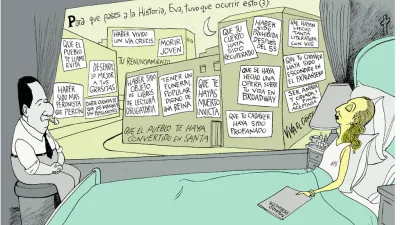 Para que pases a la Historia, Eva, tuvo que ocurrir esto(3)
QUE EL
PUEBLO
TE LLAME
EVITA
HABER VIVIDO
UN VIA CRUCIS
MORIR
JOVEN
TU RENUNCIAMIENTO
DESEARLE
LO MEJOR
A TUS
GRASITAS
HABER
SIDO MAS
PERONISTA
QUE PERÓN
HABER SIDO
OBJETO
DE LIBROS
DE LECTURA
OBLIGATORIA
TENER UN
FUNERAL
POPULAR
DIGNO DE
UNA REINA
QUE TE
HAYAS
MUERTO
INVICTA
QUE
TU CUERPO
HAYA SIDO
RECUPERADO
HABER
SIDO
PROHIBIDA
DESPUÉS
DEL 55
QUE SE HAYA
HECHO UNA
OPERA SOBRE
TU VIDA EN
BROADWAY
QUE HAYAN
HECHO
TANTA
LITERATURA
CON VOS
QUE TU CADÁVER
HAYA SIDO
ESCONDIDO EN
EL EXTRANJERO
SER AMADA
Y ODIADA
QUE TU CADÁVER
HAYA SIDO
PROFANADO
QUE EL PUEBLO TE HAYA
CONVERTIDO EN SANTA
VIVA EL